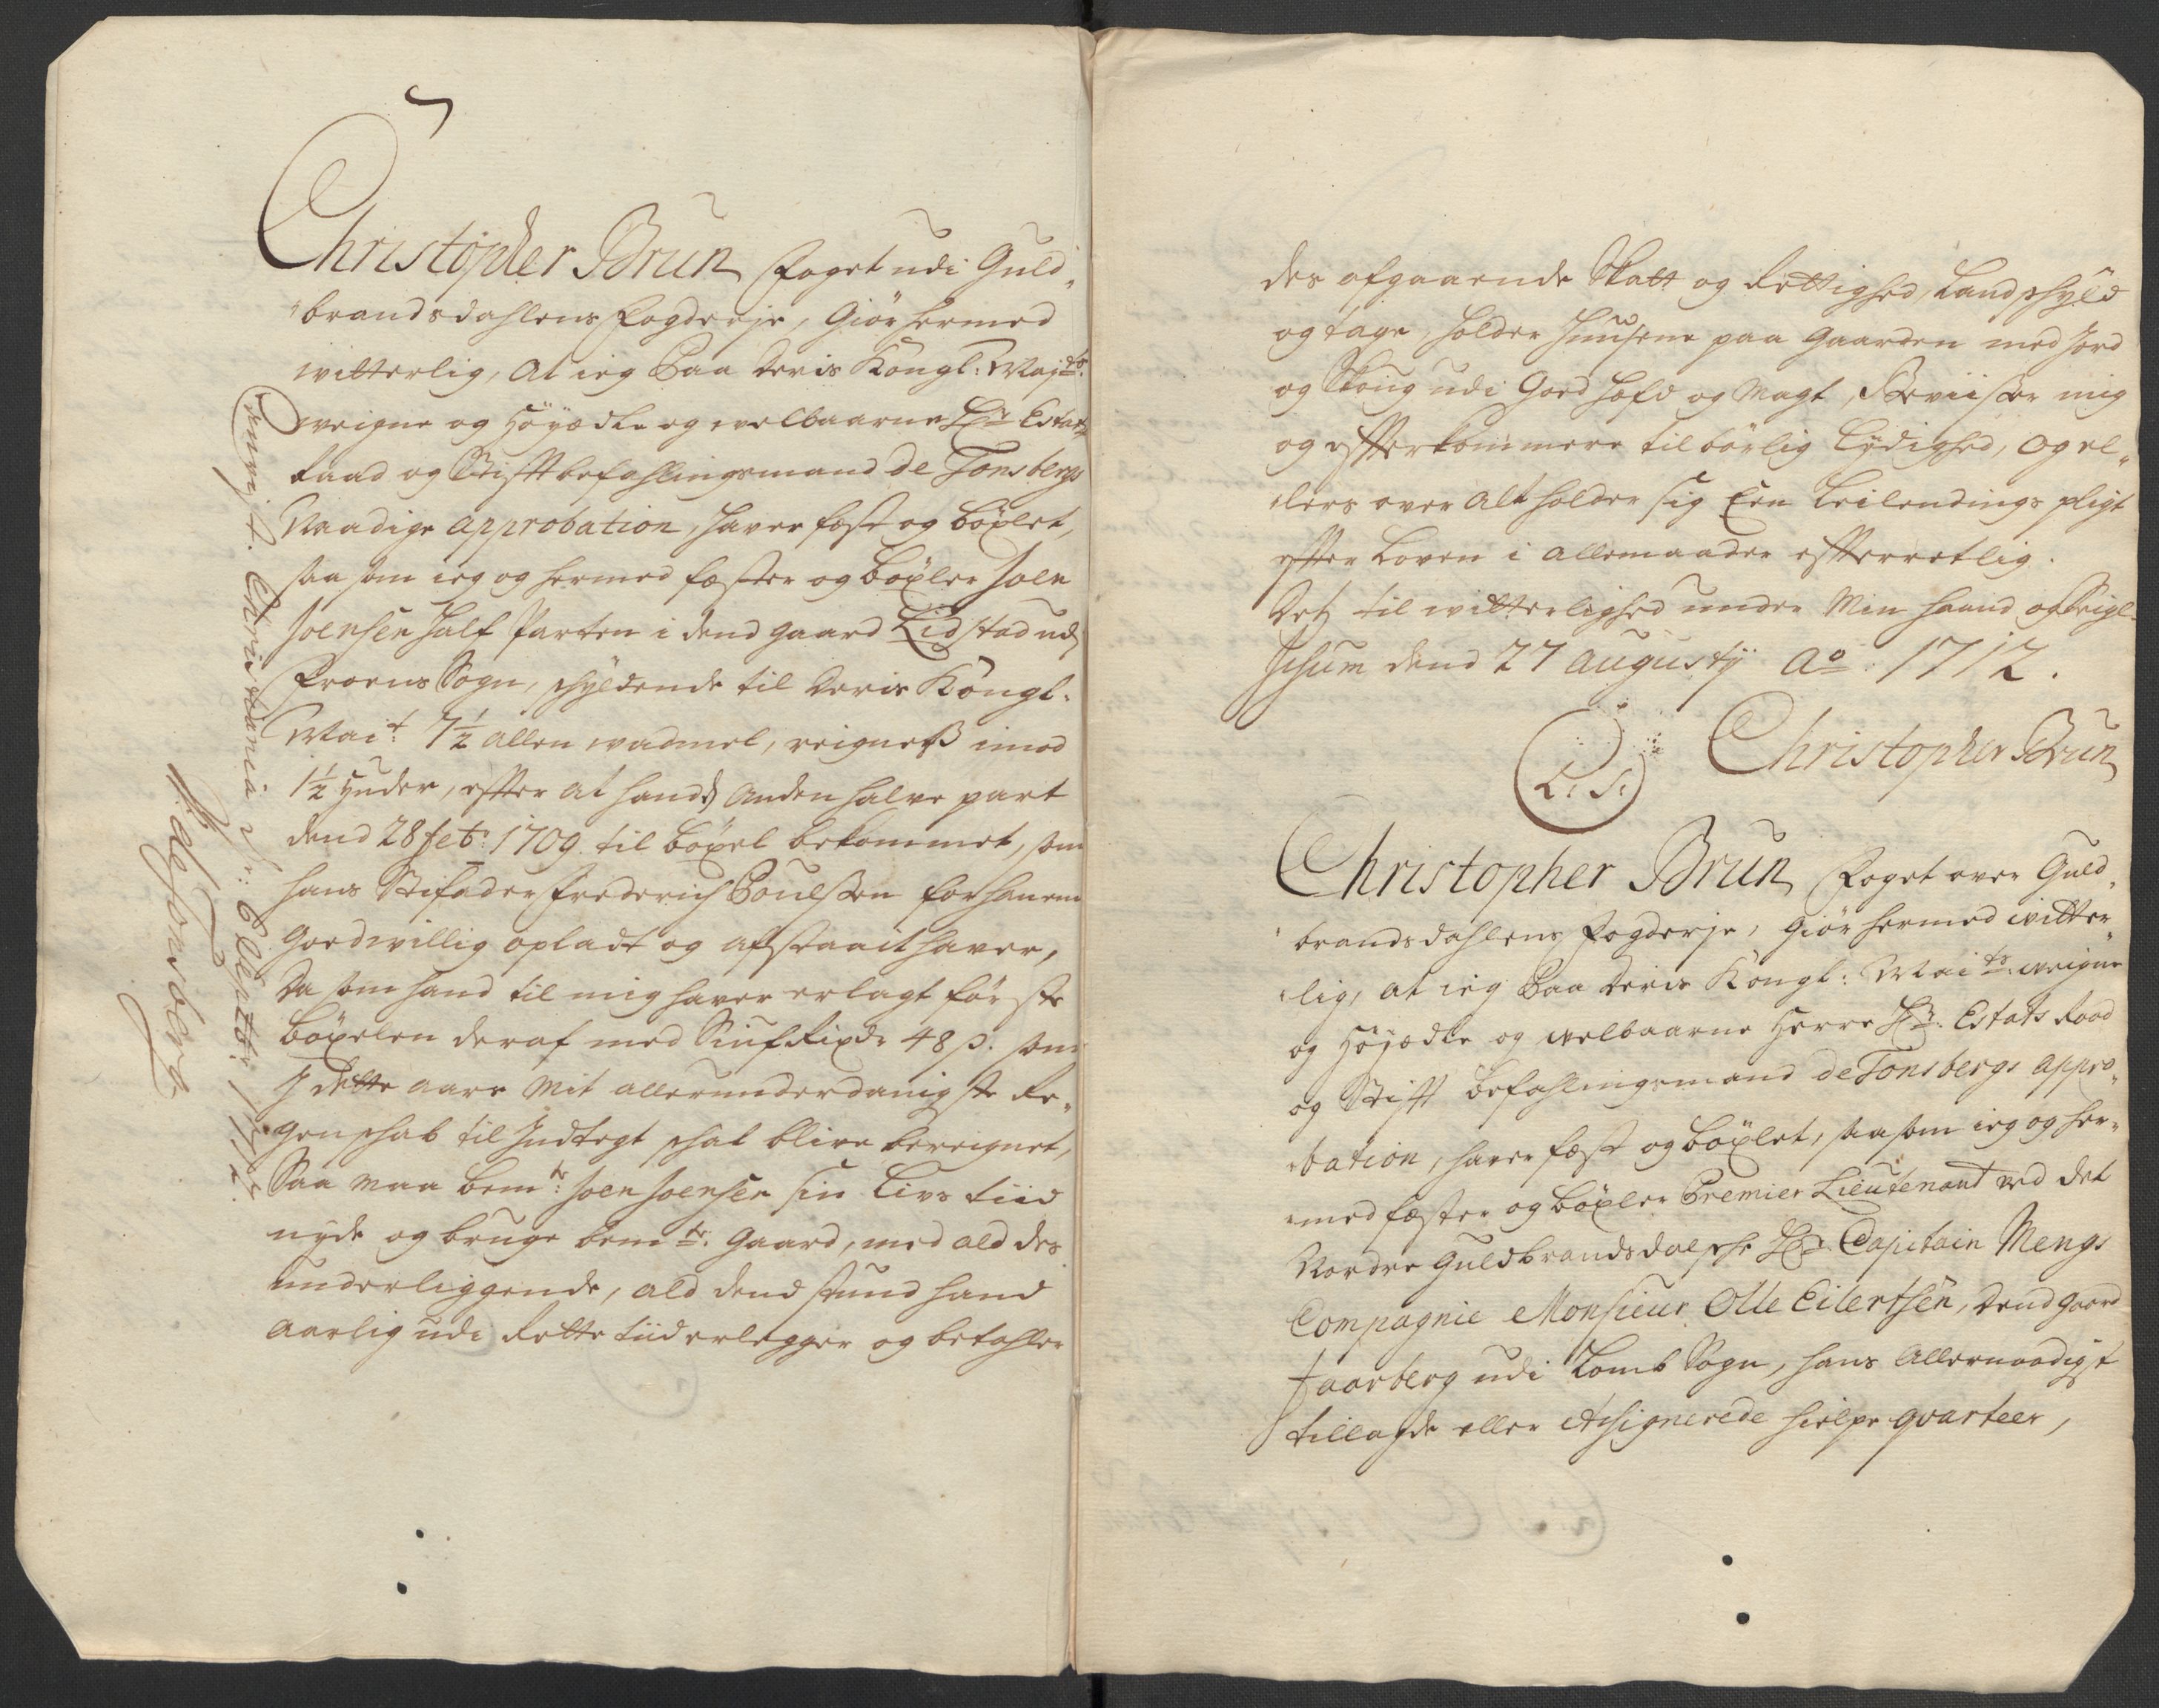 Christopher Brun Foget udi Guld„
„brandsdahlens Fogderje, Giør hermed
witterlig, At ieg Paa Deris Kongl: Majts:
weigne og Höyædle og welbaarne Hr: Estats
Raad og Stifftbefahlingsmand de Tonsbergs
Naadige approbation, haver fæst og böxlet,
saa som ieg og hermed fæster og böxler Joen
Joensen Half Parten i dend gaard Lidstad udj
Froens Sogn, schyldende til Deris Kongl.
Mait: 7½ allen wadmel, reigneß imod
1½ Huder, effter at hand d Anden halve part
dend 28 feb: 1709 til böxel bekommet, som
hans Stifader Frederich Poulssen for hanem
Goedwillig opladt og afstaait haver,
Da som hand til mig haver erlagt förste
böxelen deraf med Siuf Rixdr 48 s. som
J dette aars Mit allerunderdanigste Re„
genschab til Jndtegt schal blive bereignet,
Saa maa bemte: Joen Joensen sin Livs tiid
nyde og bruge bemte. Gaard, med ald des
underliggende, ald dend stund hand
aarlig udi Rette tiid erlegger og betahler
Confirmt. Christiania d: 6 Septbr 1712.
de Tonsberg
des afgaaende Skatt og Rettighed, Landschyld
og tage, holder Huusene paa Gaarden med Jord
og Skoug udi Goed hefd og Magt, Beviisser mig
og effterkommere tilbörlig Lydighed, og el„
„lers over alt holder sig Een Leilendings pligt
effter Loven i allemaader effterretlig.
Dets til witterlighed under Min haand og Seigl.
Jsum dend 27 Augustij Ao: 1712.
L. S.
Christopher Brun
Christopher Brun Foget over Guld„
„brandsdahlens Fogderje, Giør hermed witter„
„lig, at ieg Paa Deris Kongl: Maits: weigne
og Höyædle og welbaarne Herre Hr: Estats Raad
og Stifft befahlingsmand de Tonsbergs appro„
„bation, haver fæst og böxlet, saa som ieg og her„
„med fæster og böxler Premier Lieutenant ved det
Nordre Guldbrandsdalsche Hr. Capitain Mengs
Compagnie Monsieur Olle Eilertsen, Dend gaard
Faarberg udi Lomb Sogn, hans Allernaadigst
tillagde eller Assignerede hielpe qvarteer,